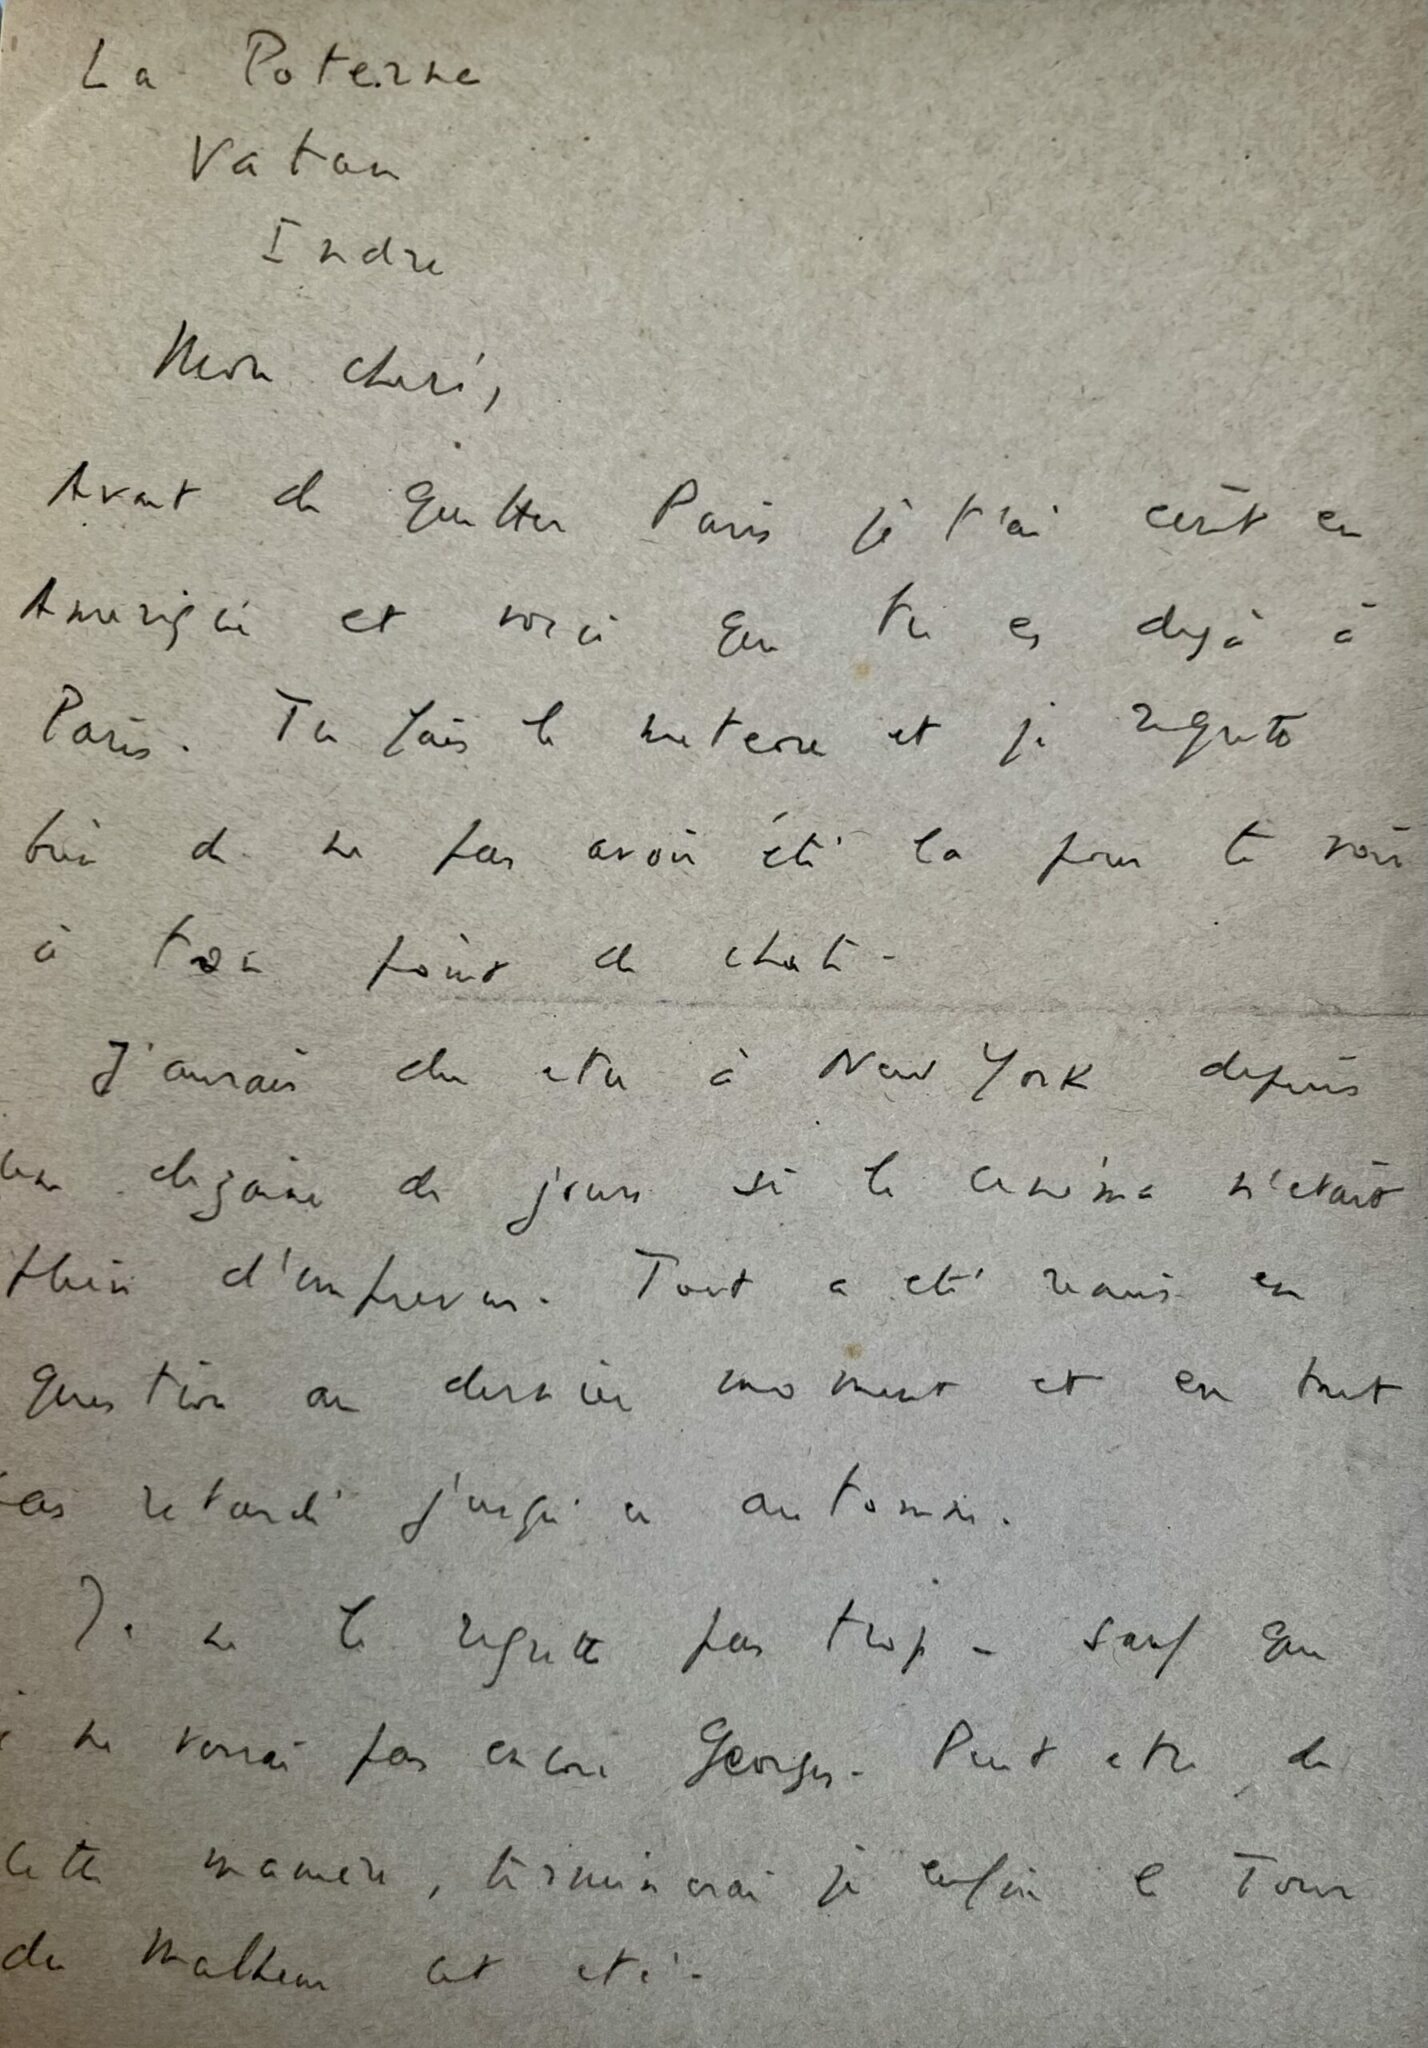 La Poterne
Vatan
Indre
Mon cheri,
Avant de quitter Paris je t'ai ecrit en
Amerique et voici que tu es dejà à
Paris. Tu fais le meteore et je regrette
bien de ne pas avoir été la pour te voir
à ton point de chute.
J'aurais du etre à New York depuis
une dizaine de jours si le cinéma n'etait
plein d'imprevus. Tout a eté remis en
question au dernier moment et en tout
cas retardé jusqu'a automne.
Je ne le regrette pas trop - sauf que
je ne verrai pas encore Georges. Peut etre, de
cette maniere, terminerai je enfin le Tour
du Malheur cet eté.